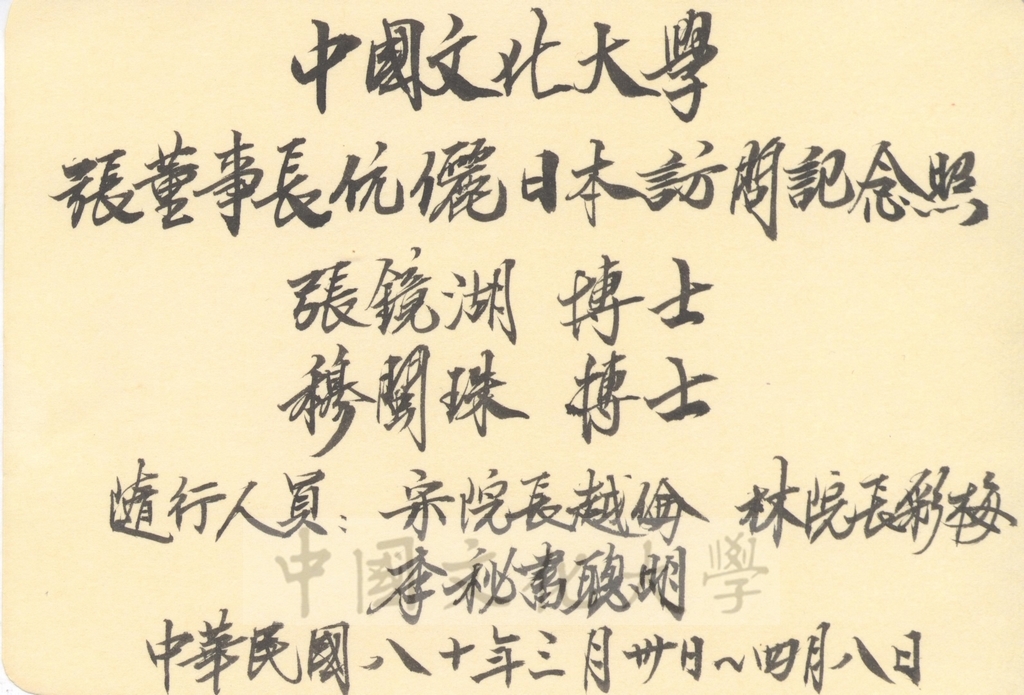 中國文化大學
張董事長伉儷日本訪問記念照
張鏡湖 博士
穆閩珠 博士
隨行人員: 宗院長越倫 林院長彩梅
李秘書聰明
中國文化大學
中華民國八十年三月卅日~四月八日